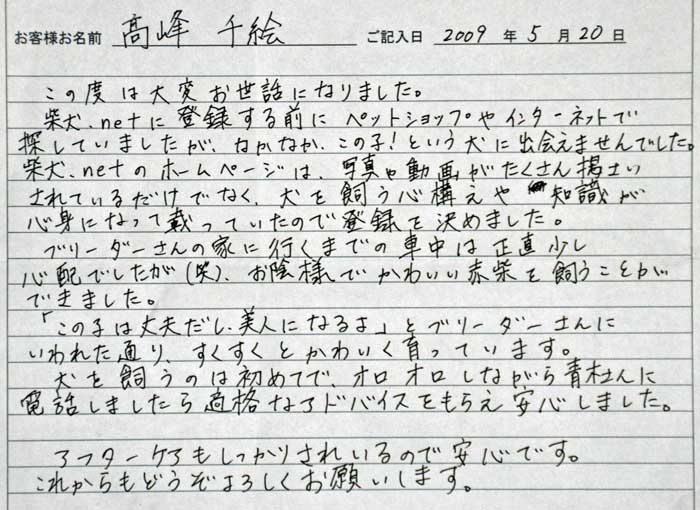 お客様お名前 高峰 千絵 ご記入日 2009 年 5 月 20 日
この度は大変お世話になりました。
柴犬.netに登録する前にペットショップやインターネットで
探していましたが、なかなか、この子!という犬に出会えませんでした。
柴犬.netのホームページは、写真や動画がたくさん掲さい
されているだけでなく、犬を飼う心構えや 知識が
心身になって載っていたので登録を決めました。
ブリーダーさんの家に行くまでの車中は正直少し
心配でしたが(笑)、お陰様でかわいい赤柴を飼うことが
できました。
「この子は丈夫だし、美人になるよ」とブリーダーさんに
いわれた通り、すくすくとかわいく育っています。
犬を飼うのは初めてで、オロオロしながら青村さんに
電話しましたら適格なアドバイスをもらえ安心しました。
アフターケアもしっかりされいるので安心です。
これからもどうぞよろしくお願いします。